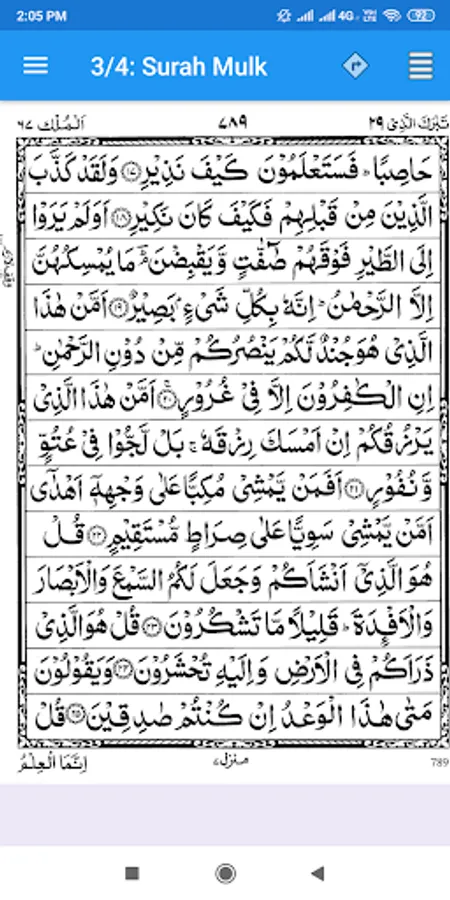 2:05 PM 4G VoLTE 92
3/4: Surah Mulk
تَبٰرَكَ الَّذِىْ ٢٩ ٧٨٩ اَلْمُلْك ٦٧
حَاصِبًا ؕ فَسَتَعْلَمُوْنَ كَيْفَ نَذِيْرِ ﴿١٧﴾ وَلَقَدْ كَذَّبَ
الَّذِيْنَ مِنْ قَبْلِهِمْ فَكَيْفَ كَانَ نَكِيْرِ ﴿١٨﴾ اَوَلَمْ يَرَوْا
اِلَى الطَّيْرِ فَوْقَهُمْ صٰٓفّٰتٍ وَّيَقْبِضْنَ ؔۘ مَا يُمْسِكُهُنَّ
اِلَّا الرَّحْمٰنُ ؕ اِنَّهٗ بِكُلِّ شَىْءٍۢ بَصِيْرٌ ﴿١٩﴾ اَمَّنْ هٰذَا
الَّذِىْ هُوَ جُنْدٌ لَّكُمْ يَنْصُرُكُمْ مِّنْ دُوْنِ الرَّحْمٰنِ ؕ
اِنِ الْكٰفِرُوْنَ اِلَّا فِىْ غُرُوْرٍ ﴿٢٠﴾ اَمَّنْ هٰذَا الَّذِىْ
يَرْزُقُكُمْ اِنْ اَمْسَكَ رِزْقَهٗ ۚ بَلْ لَّجُّوْا فِىْ عُتُوٍّ
وَّنُفُوْرٍ ﴿٢١﴾ اَفَمَنْ يَّمْشِىْ مُكِبًّا عَلٰى وَجْهِهٖۤ اَهْدٰٓى
اَمَّنْ يَّمْشِىْ سَوِيًّا عَلٰى صِرَاطٍ مُّسْتَقِيْمٍ ﴿٢٢﴾ قُلْ
هُوَ الَّذِىْۤ اَنْشَاَكُمْ وَجَعَلَ لَكُمُ السَّمْعَ وَالْاَبْصَارَ
وَالْاَفْـِٕدَةَ ؕ قَلِيْلًا مَّا تَشْكُرُوْنَ ﴿٢٣﴾ قُلْ هُوَ الَّذِىْ
ذَرَاَكُمْ فِى الْاَرْضِ وَاِلَيْهِ تُحْشَرُوْنَ ﴿٢٤﴾ وَيَقُوْلُوْنَ
مَتٰى هٰذَا الْوَعْدُ اِنْ كُنْتُمْ صٰدِقِيْنَ ﴿٢٥﴾ قُلْ
اِنَّمَا الْعِلْمُ منزل ٧ 789